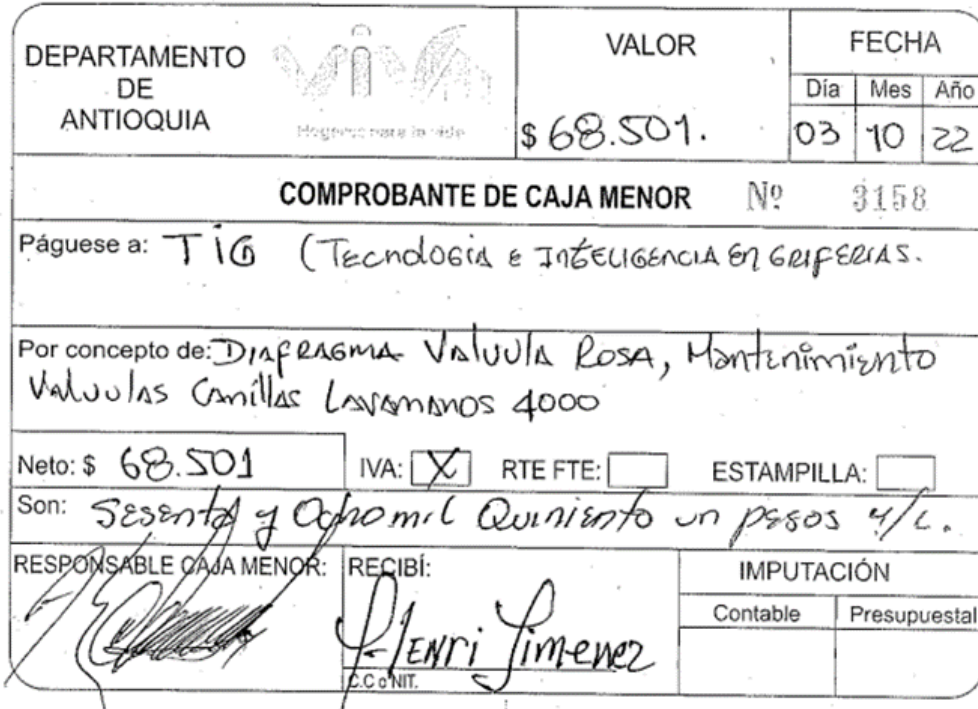 DEPARTAMENTO
DE
ANTIOQUIA
VIVA
Hogares para la vida
VALOR
$ 68.501.
FECHA
Día Mes Año
03 10 22
COMPROBANTE DE CAJA MENOR Nº 3158
Páguese a: TiG (Tecnología e InTELIGENCIA En GRIFERIAS.
Por concepto de: DIAFRAGMA Valvula Rosa, Mantenimiento
Valvulas Canillas Lavamanos 4000
Neto: $ 68.501 IVA: X RTE FTE: ESTAMPILLA:
Son: Sesenta y Ocho mil Quiniento un pesos M/L.
RESPONSABLE CAJA MENOR:
RECIBÍ:
Henri Jimenez
C.C o NIT.
IMPUTACIÓN
Contable Presupuestal